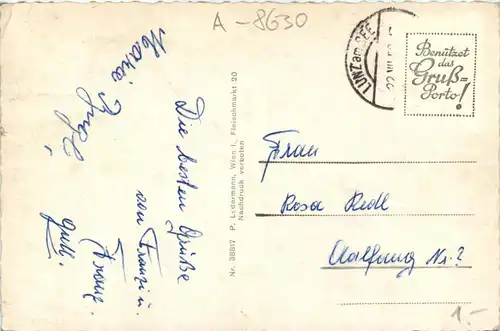 A-8630
LUNZ am SEE
Benützet
das
Gruß-
Porto!
Die besten Grüße
von Franzi u.
Franz
Nr. 38817 P. Ledermann, Wien I., Fleischmarkt 20
Nachdruck verboten
Frau
Rosa Redl
Aalfang Nr. 2
1.-